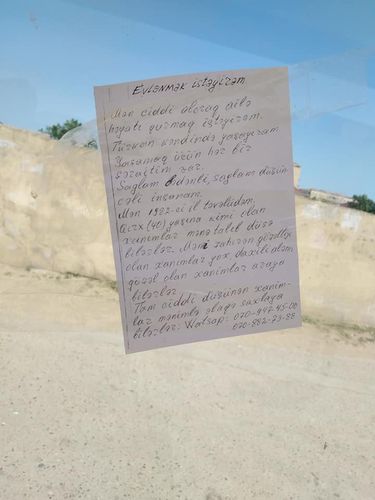 Evlənmək istəyirəm
Mən ciddi olaraq ailə
həyatı qurmaq istəyirəm.
kəndində yaşayıram
Yaşamaq üçün hər bir
şəraitim var.
Sağlam bədənli, sağlam düşün
cəli insanam.
Mən 1982-ci il təvəllüdəm,
Qırx (40) yaşına kimi olan
xanımlar mənə təklif düşə
bilərlər. Məni zahirən gözəlliyi
olan xanımlar yox daxili aləmi
gözəl olan xanımlar axıya
bilərlər.
Tam ciddi düşünən xanım-
lar mənimlə əlaqə saxlaya
bilərlər: Watsap: 070-947-45-00
070-882-79-88